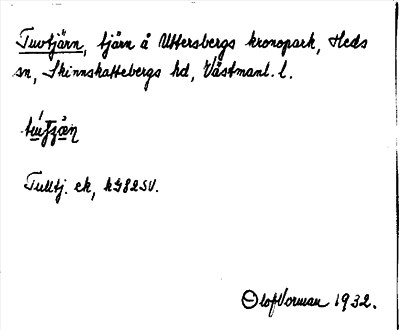 Tuvtjärn, tjärn å Uttersbergs kronopark, Heds
sn, Skinnskattebergs hd, Västmanl. l.
Tulltj. ek,
Olof Vorman 1932.